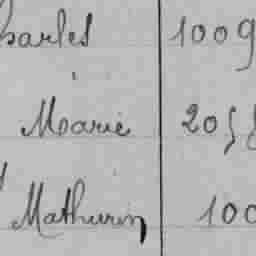 Charles 1009
Marie 205
Mathurin 100